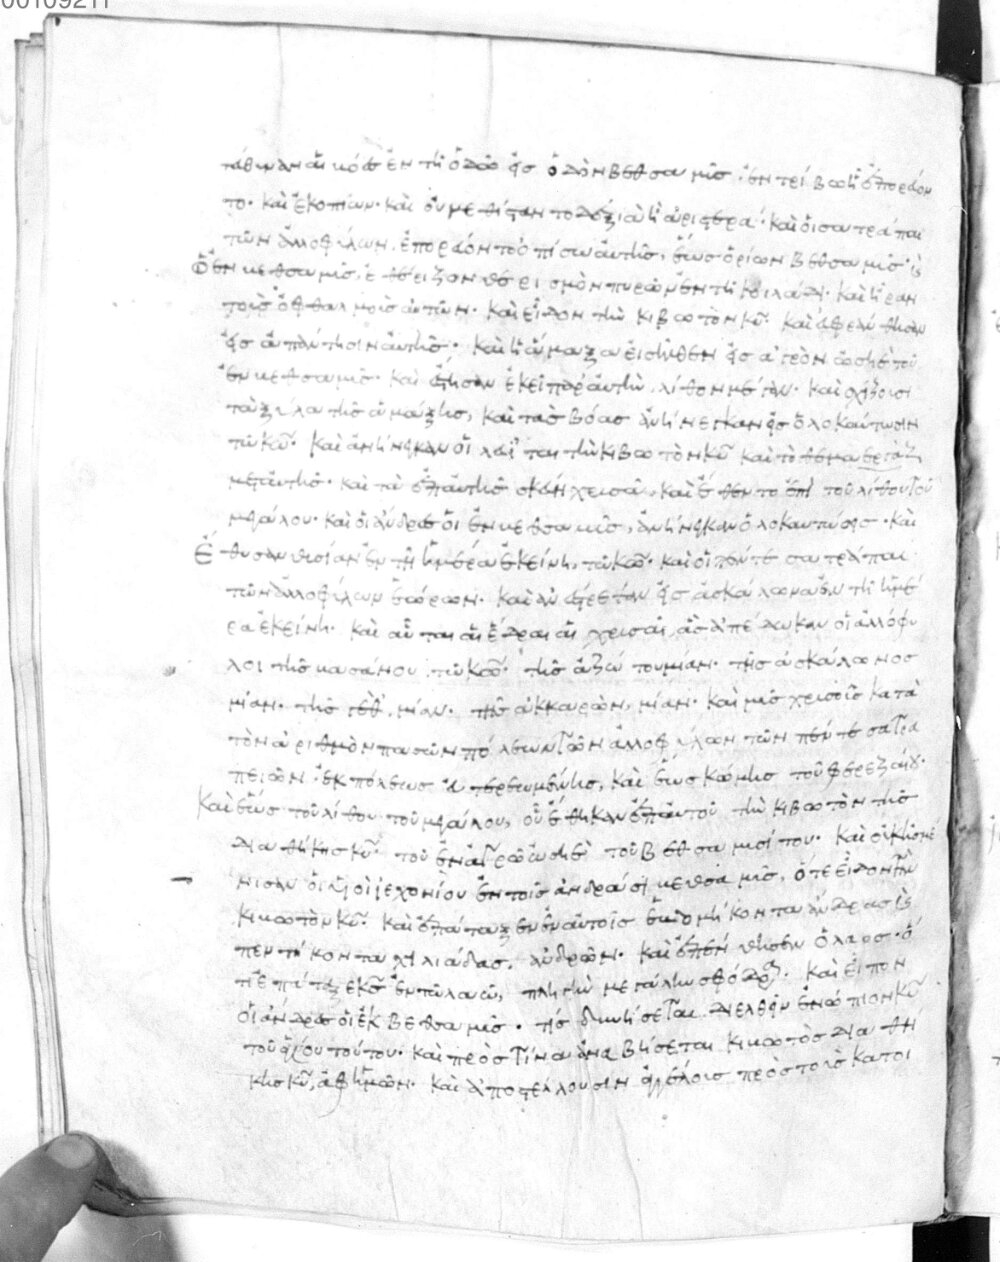 00109211
τάθυναν αἱ βόες ἐν τῆ ὁδῶ εἰς ὁδὸν βεθσαμὶς· ἐν τρίβω ἡ ἐπορεύον
το· καὶ ἐκοπίων· καὶ οὐ μεθίσταντο δεξιὰ ἢ ἀριστερά· καὶ οἱ σατράπαι
τῶν ἀλλοφύλων, ἐπορεύοντο ὀπίσω αὐτῆς, ἕως ὁρίων βεθσαμίς·
ἐν βεθσαμὶς, ἐθέριζον θερισμὸν πυρῶν ἐν τῆ κοιλάδι· καὶ ἦραν
τοὺς ὀφθαλμοὺς αὐτῶν· καὶ εἶδον τὴν κιβωτὸν κῡ· καὶ ηὐφράνθησαν
εἰς ἀπάντησιν αὐτῆς· καὶ ἡ ἅμαξα εἰσῆλθεν εἰς ἀγρὸν ὠσηὲ τοῦ
ἐν βεθσαμὶς· καὶ ἔστησαν ἐκεῖ παρ αὐτὴν, λίθον μέγαν· καὶ σχίζουσι
τὰ ξύλα τῆς ἁμάξης, καὶ τὰς βόας ἀνήνεγκαν εἰς ὁλοκαύτωσιν
τῶ κω̄· καὶ ἀνήνεγκαν οἱ λευῖται τὴν κιβωτὸν κῡ καὶ τὸ θέμα
μετ αὐτῆς· καὶ τὰ ἐπ αὐτῆς σκεύη χρυσᾶ, καὶ ἔθεντο ἐπὶ τοῦ λίθου τοῦ
μεγάλου· καὶ οἱ ἄνδρες οἱ ἐν βεθσαμὶς, ἀνήνεγκαν ὁλοκαυτώσεις· καὶ
ἔθυσαν θυσίαν ἐν τῆ ἡμέρα ἐκείνη, τῶ κω̄· καὶ οἱ πέντε σατράπαι
τῶν ἀλλοφύλων ἑώρων· καὶ ἀνέστρεψαν εἰς ἀσκάλωνα ἐν τῆ ἡμέ
ρα ἐκείνη· καὶ αὗται αἱ ἕδραι αἱ χρυσαῖ, ἃς ἀπέδωκαν οἱ ἀλλόφυ
λοι τῆς βασάνου τῶ κω̄· τῆς ἀζώτου μίαν· τῆς ἀσκάλωνος
μίαν· τῆς γὲθ, μίαν· τῆς ἀκκαρὼν, μίαν· καὶ μῦς χρυσοῖς κατὰ
τὸν ἀριθμὸν πασῶν πόλεων τῶν ἀλλοφύλων τῶν πέντε σατρα
πειῶν· ἐκ πόλεως ἐστερεωμένης, καὶ ἕως κώμης τοῦ φερεζαίου·
καὶ ἕως τοῦ λίθου τοῦ μεγάλου, οὗ ἔθηκαν ἐπ αὐτοῦ τὴν κιβωτὸν τῆς
διαθήκης κῡ· τοῦ ἐν ἀγρῶ ὠσηὲ τοῦ βεθσαμισίτου· καὶ οὐκ ἠσμέ
νισαν οἱ υἱοὶ ἰεχονίου ἐν τοῖς ἀνδράσι βεθσαμὶς, ὅτε εἶδον τὴν
κιβωτὸν κῡ· καὶ ἐπάταξεν ἐν αὐτοῖς ἑβδομήκοντα ἄνδρας
πεντήκοντα χιλιάδας, ἀνδρῶν· καὶ ἐπένθησεν ὁ λαὸς· ὅ
τι ἐπάταξε κς̄ ἐν τῶ λαῶ, πληγὴν μεγάλην σφόδρα· καὶ εἶπον
οἱ ἄνδρες οἱ ἐκ βεθσαμὶς· τίς δυνήσεται διελθεῖν ἐνώπιον κῡ
τοῦ ἁγίου τούτου· καὶ πρὸς τίνα ἀναβήσεται κιβωτὸς διαθή
κης κῡ, ἀφ ἡμῶν· καὶ ἀποστέλλουσιν ἀγγέλους πρὸς τοὺς κατοι